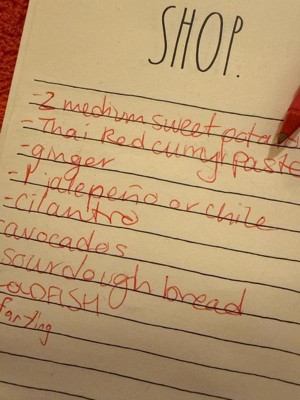 SHOP.
-2 medium sweet potato
-Thai Red curry paste
-ginger
-1 jalepeño or chile
-cilantro
-avocados
sourdough bread
OLDFISH